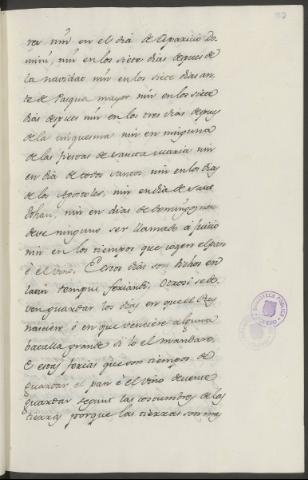 nin en el dia de Aparicio Do-
mini, nin en los siete dias depues de
la navidat nin en los siete dias an-
te de Pasqua mayor nin en los siete
dias depues nin en los tres dias depues
de la cinquesma nin en ninguna
de las fiestas de sancta Maria nin
en dia de todos santos, nin en los dias
de los Apostoles, nin en dia de Sant
Johan, nin en dias de Domingo non
deve ninguno ser llamado á juicio
nin en los tiempos que cogen el pan
ó el vino. E estos dias son dichos en
latin tempus feriandi. Otrosi se de-
ven guardar los dias en que el Rey
naciere ó en que venciere alguna
batalla grande si lo el mandare.
E estas ferias que son tiempos de
guardar el pan é el vino devense
guardar segunt las costumbres de las
tierras porque las tierras son